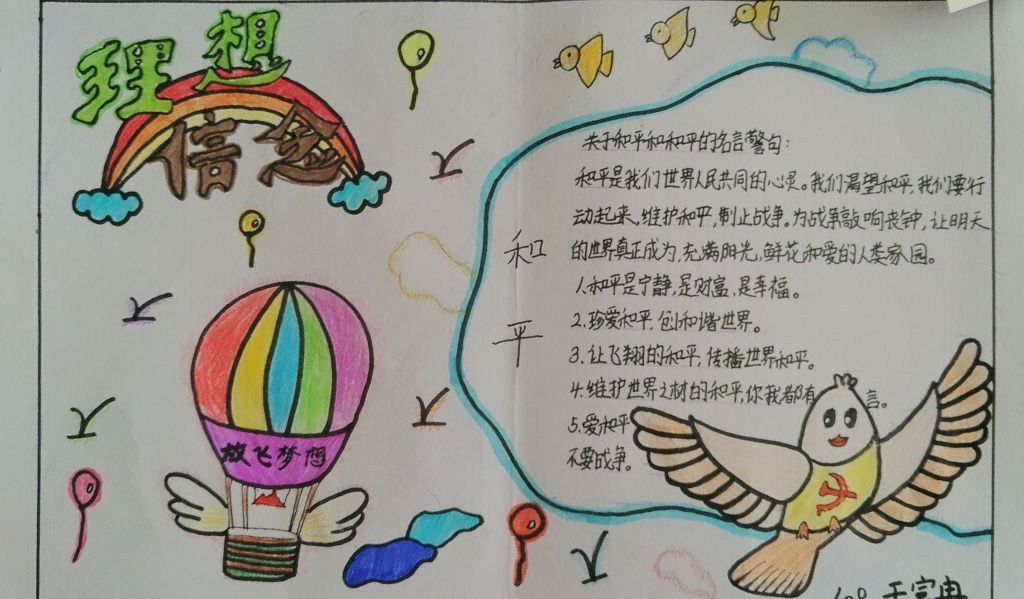 理想
信念
放飞梦想
和
平
关于和平和和平的名言警句:
和平是我们世界人民共同的心灵。我们渴望和平,我们要行
动起来,维护和平,制止战争,为战争敲响丧钟,让明天
的世界真正成为,充满阳光,鲜花和爱的人类家园。
1.和平是宁静,是财富,是幸福。
2.珍爱和平,创和谐世界。
3.让飞翔的和平,传播世界和平。
4.维护世界之材的和平,你我都有 言。
5.爱和平
不要战争。